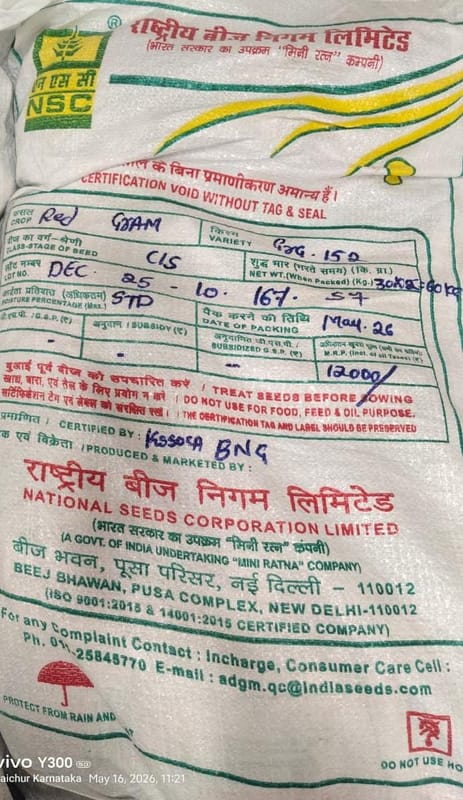 राष्ट्रीय बीज निगम लिमिटेड
(भारत सरकार का उपक्रम "मिनी रत्न" कम्पनी)
एन एस सी
NSC
®
के बिना प्रमाणीकरण अमान्य हैं।
CERTIFICATION VOID WITHOUT TAG & SEAL
फसल
CROP Red GRAM
किस्म
VARIETY GRG. 152
बीज का वर्ग-श्रेणी
CLASS-STAGE OF SEED C/S
शुद्ध भार (भरते समय) (कि. ग्रा.)
NET WT.(When Packed) (Kg.)
लौट नम्बर
LOT NO. DEC. 25 - 10. 167.
आर्द्रता प्रतिशत (अधिकतम)
MOISTURE PERCENTAGE (Max.) STD
पैक करने की तिथि
DATE OF PACKING May. 26
G.S.P. (₹)
अनुदान / SUBSIDY (₹)
SUBSIDIZED G.S.P. (₹)
M.R.P. (Incl. of all Taxes) (₹)
- - - 12000/
बुआई पूर्व बीज को उपचारित करें / TREAT SEEDS BEFORE SOWING
खाद्य, चारा, एवं तेल के लिए प्रयोग न करें / DO NOT USE FOR FOOD, FEED & OIL PURPOSE.
सर्टिफिकेशन टैग एवं लेबल को संरक्षित रखें / THE CERTIFICATION TAG AND LABEL SHOULD BE PRESERVED
प्रमाणित / CERTIFIED BY : KSSOCA BNG
एवं विक्रेता /PRODUCED & MARKETED BY :
राष्ट्रीय बीज निगम लिमिटेड
NATIONAL SEEDS CORPORATION LIMITED
(भारत सरकार का उपक्रम "मिनी रत्न" कंपनी)
(A GOVT. OF INDIA UNDERTAKING "MINI RATNA" COMPANY)
बीज भवन, पूसा परिसर, नई दिल्ली - 110012
BEEJ BHAWAN, PUSA COMPLEX, NEW DELHI-110012
(ISO 9001:2015 & 14001:2015 CERTIFIED COMPANY)
For any Complaint Contact : Incharge, Consumer Care Cell :
Ph. 011-25845770 E-mail : adgm.qc@indiaseeds.com
PROTECT FROM RAIN AND
DO NOT USE HO
vivo Y300
aichur Karnataka May 16, 2026, 11:21